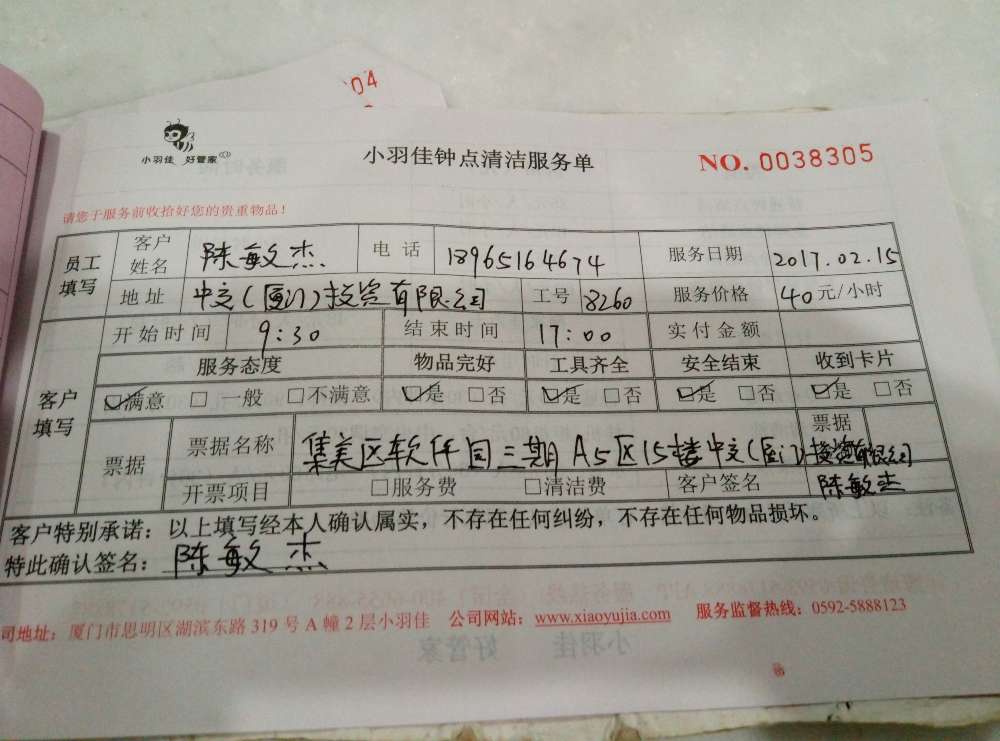 04
小羽佳 好管家
小羽佳钟点清洁服务单
NO. 0038305
请您于服务前收拾好您的贵重物品！
员工填写 客户姓名 陈敏杰 电话 18965164674 服务日期 2017.02.15
地址 中交(厦门)投资有限公司 工号 8260 服务价格 40元/小时
客户填写 开始时间 9:30 结束时间 17:00 实付金额
服务态度 物品完好 工具齐全 安全结束 收到卡片
☑满意 □一般 □不满意 ☑是 □否 ☑是 □否 ☑是 □否 ☑是 □否
票据 票据名称 集美区软件园三期A5区15楼中交(厦门)投资有限公司 票据
开票项目 □服务费 □清洁费 客户签名 陈敏杰
客户特别承诺：以上填写经本人确认属实，不存在任何纠纷，不存在任何物品损坏。
特此确认签名：陈敏杰
司地址：厦门市思明区湖滨东路 319 号 A 幢 2 层小羽佳 公司网站：www.xiaoyujia.com 服务监督热线：0592-5888123